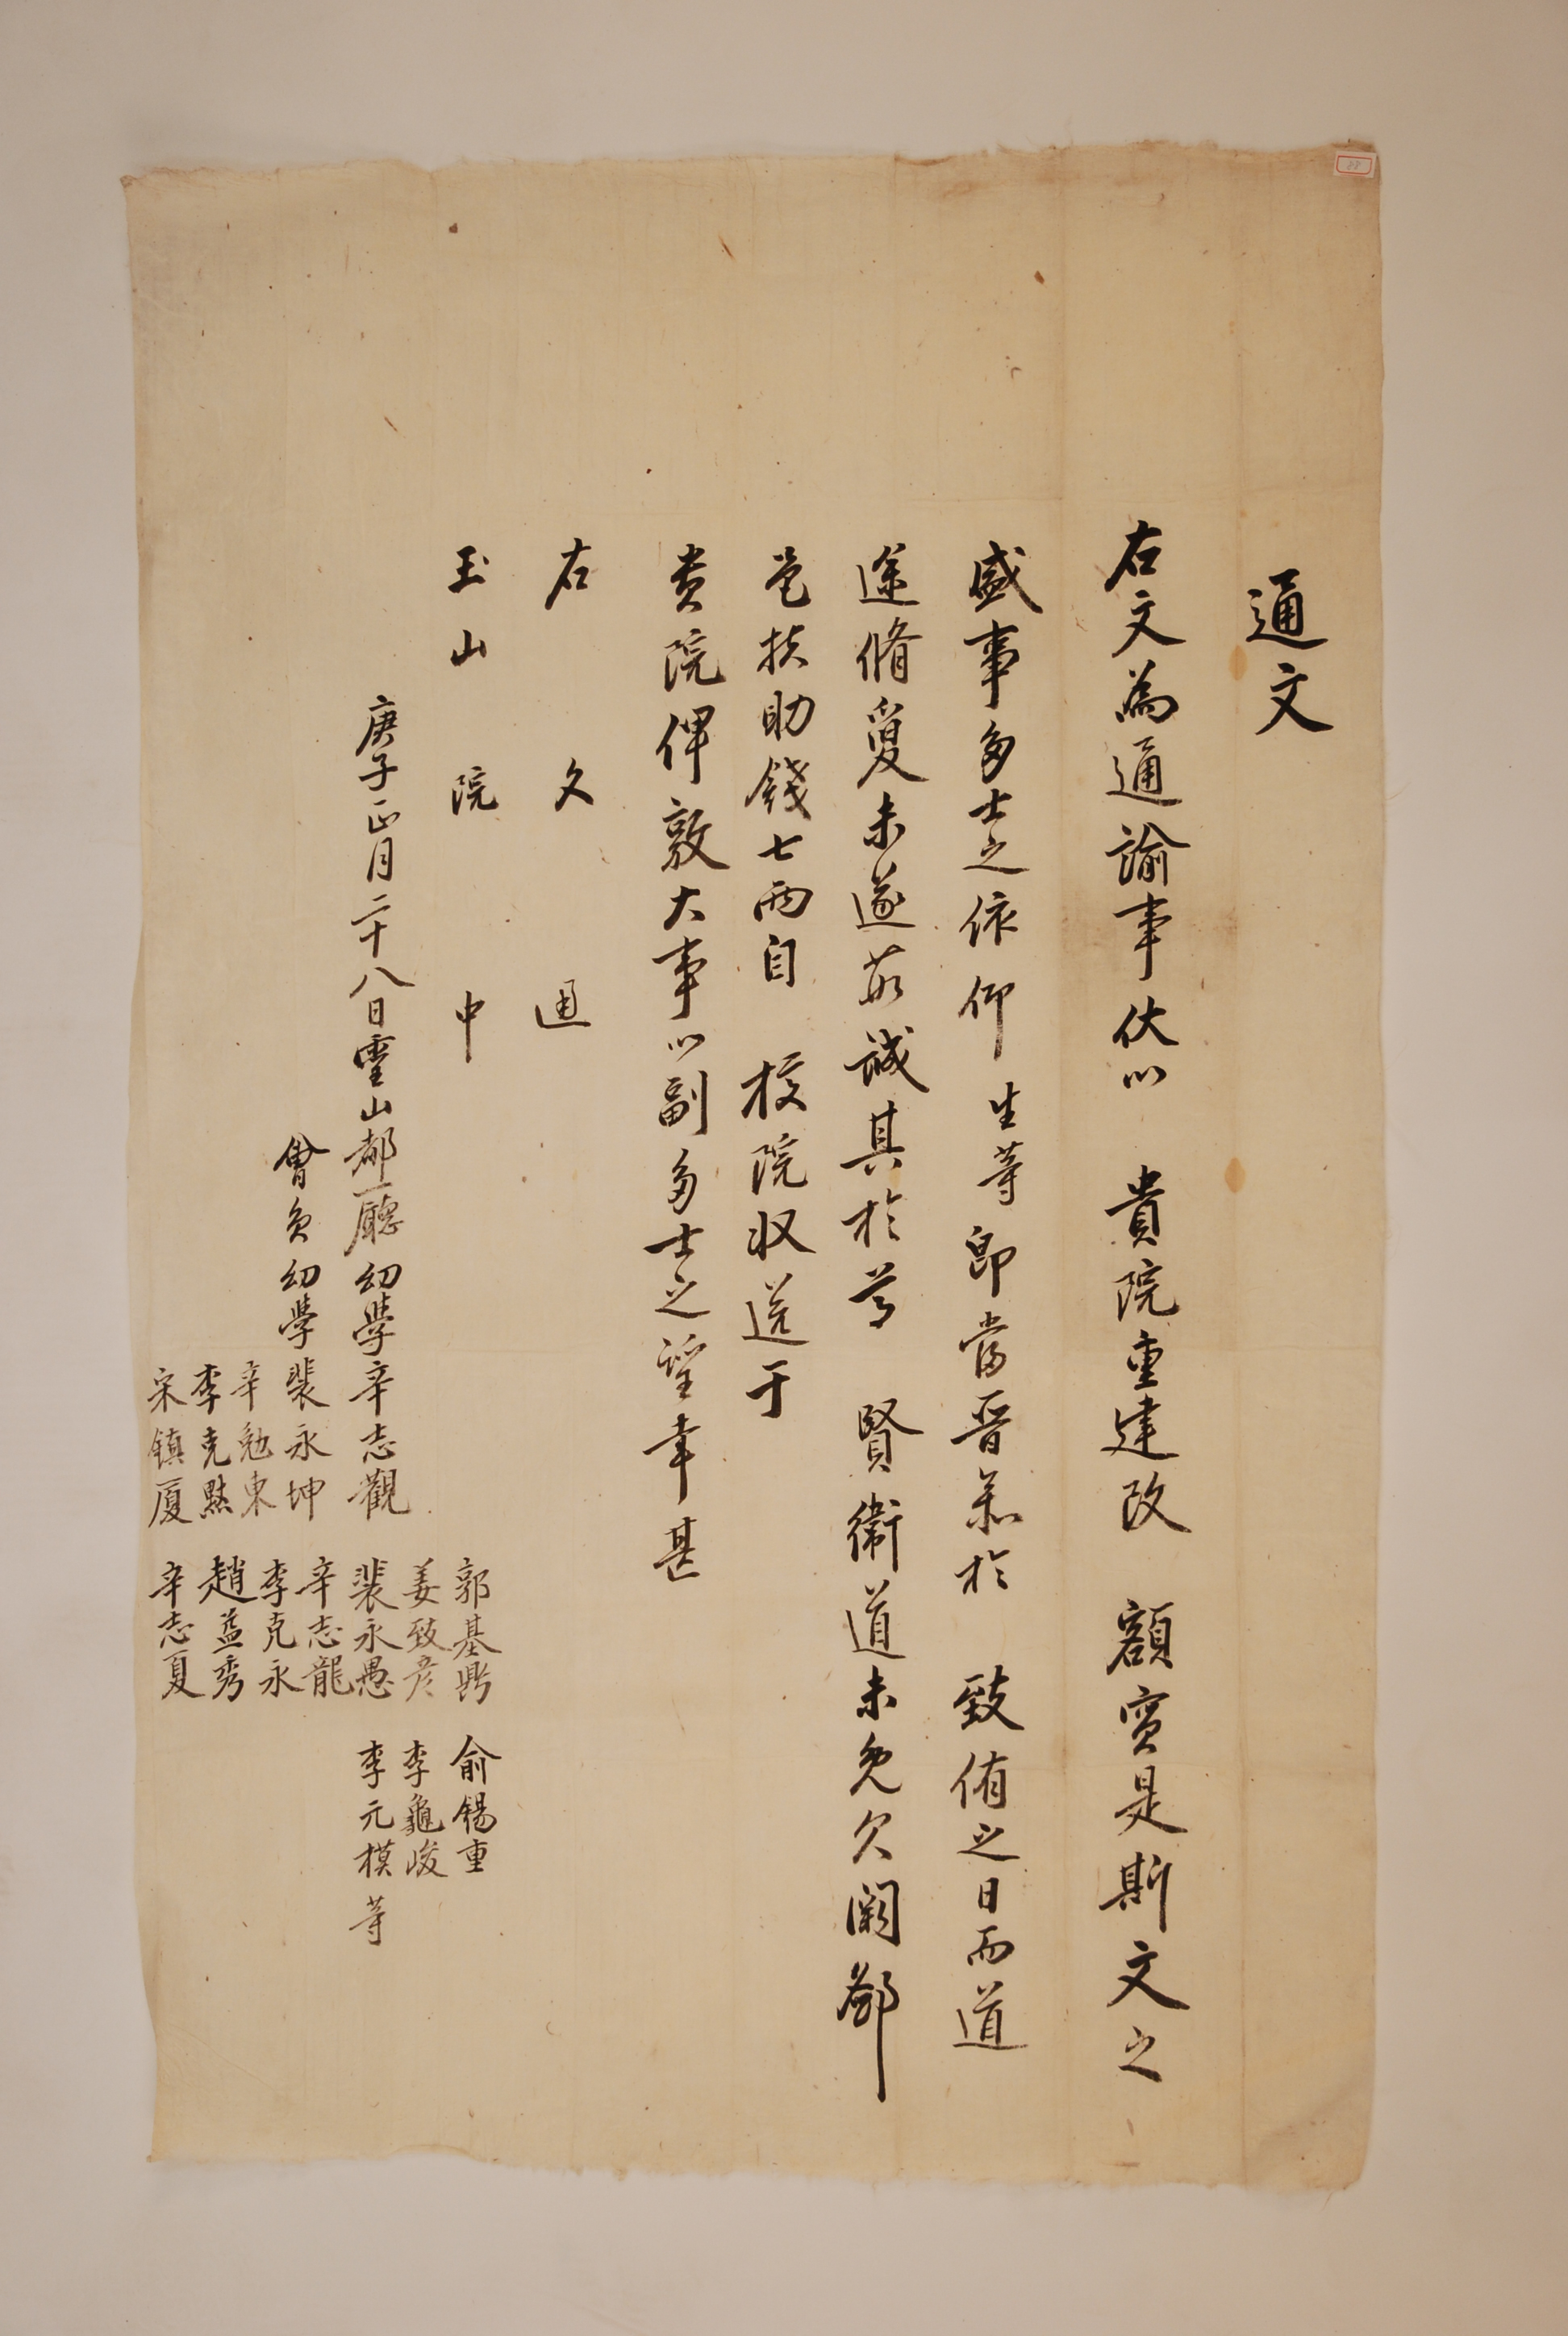 通文
右文為通諭事伏以 貴院重建改 額實是斯文之
盛事多士之依仰 生等 卽當晉羕於 致侑之日而道
途脩夐未遂茲誠其於尊 賢衛道未免欠闕鄙
邑扶助錢七兩自 校院收送于
貴院俾敦大事以副多士之望幸甚
右文通
玉山院中
庚子正月二十八日靈山都廳幼學辛志觀
會員幼學裴永坤
辛勉東
李克㸃
宋鎮厦
郭基
姜致彦
裴永愚
辛志龍
李克永
趙益秀
辛志夏
俞錫重
李龜峻
李元模 等
88